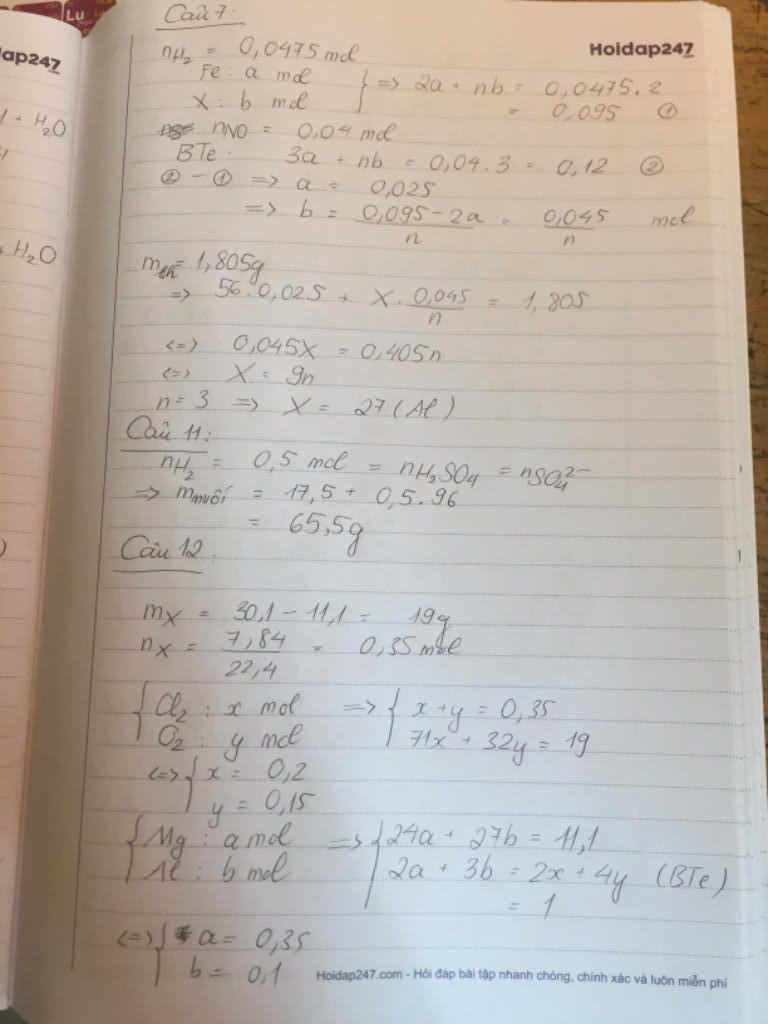 Lu
ap247
+ H₂O
+ H₂O
Câu 7:
Hoidap247
nH₂ = 0,0475 mol
Fe : a mol
X : b mol } => 2a + nb = 0,0475.2
= 0,095 ①
nNO = 0,04 mol
BTe: 3a + nb = 0,04.3 = 0,12 ②
② - ① => a = 0,025
=> b = (0,095 - 2a)/n = 0,045/n mol
= 1,805g
=> 56.0,025 + X.0,045/n = 1,805
<=> 0,045X = 0,405n
<=> X = 9n
n = 3 => X = 27 (Al)
Câu 11:
nH₂ = 0,5 mol = nH₂SO₄ = nSO₄²⁻
=> mmuối = 17,5 + 0,5.96
= 65,5g
Câu 12
mX = 30,1 - 11,1 = 19g
nX = 7,84/22,4 = 0,35 mol
{ Cl₂ : x mol => { x + y = 0,35
O₂ : y mol 71x + 32y = 19
<=> { x = 0,2
y = 0,15
{ Mg : a mol => { 24a + 27b = 11,1
Al : b mol 2a + 3b = 2x + 4y (BTe)
= 1
<=> { a = 0,35
b = 0,1
Hoidap247.com - Hỏi đáp bài tập nhanh chóng, chính xác và luôn miễn phí